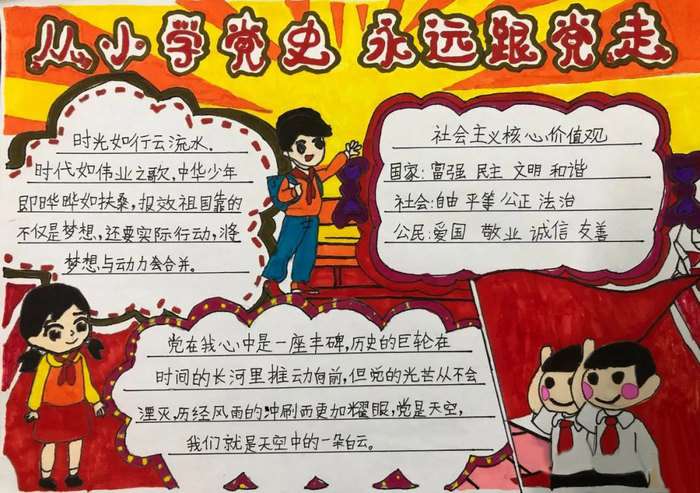 从小学党史 永远跟党走
时光如行云流水.
时代如伟业之歌.中华少年
即晔晔如扶桑,报效祖国靠的
不仅是梦想,还要实际行动,将
梦想与动力会合并。
社会主义核心价值观
国家:富强 民主 文明 和谐
社会:自由 平等 公正 法治
公民:爱国 敬业 诚信 友善
党在我心中是一座丰碑,历史的巨轮在
时间的长河里推动向前,但党的光芒从不会
湮灭,历经风雨的冲刷而更加耀眼,党是天空,
我们就是天空中的一朵白云。